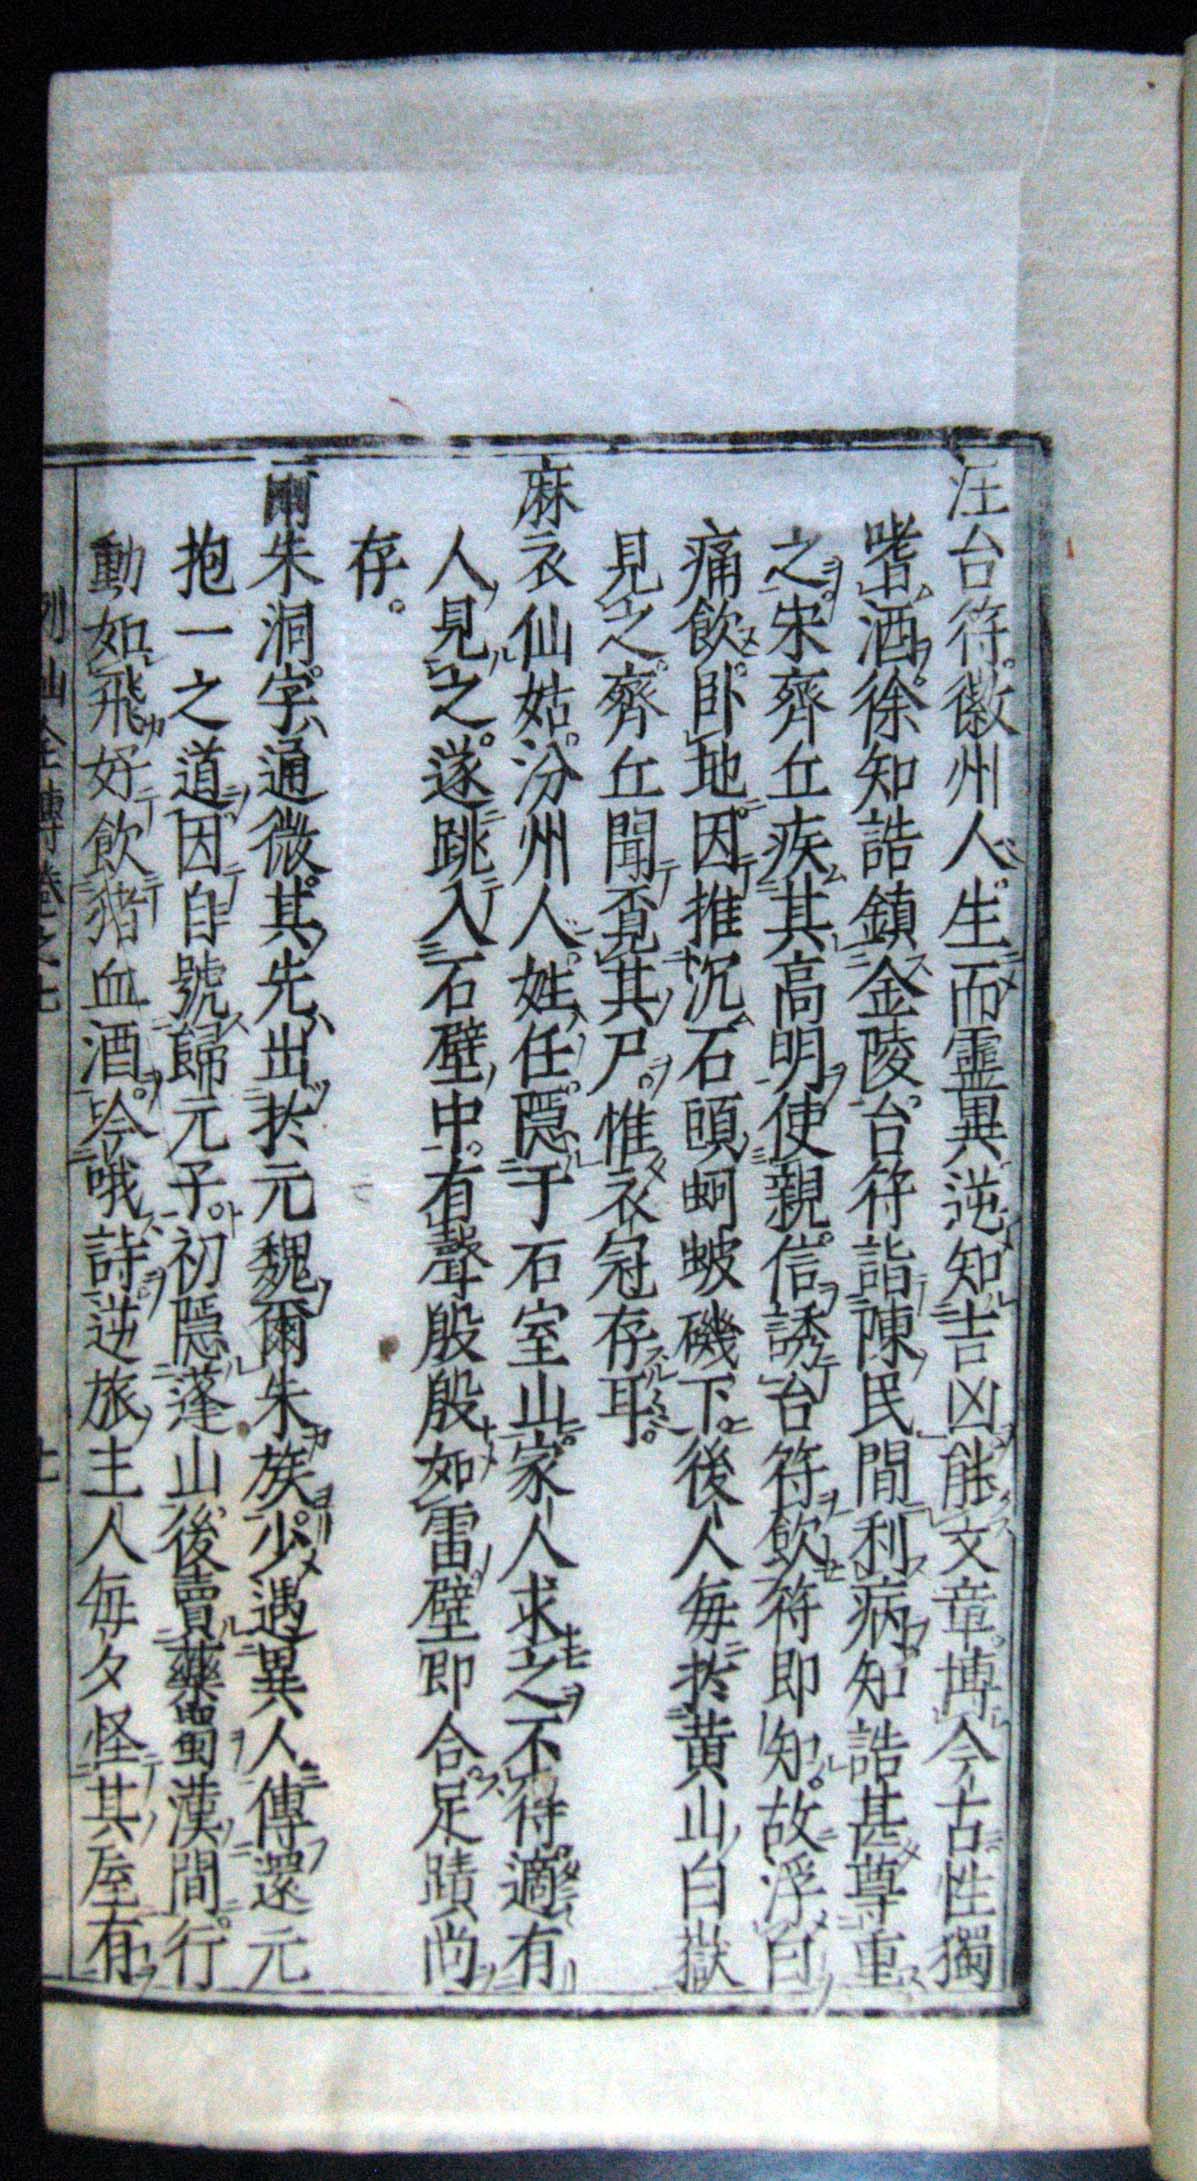 汪台符。徽州人。生而靈異逆知吉凶能文章。博今古性獨
嗜酒。徐知誥鎮金陵。台符詣陳民間利病知誥甚尊重
之。宋齊丘疾其高明使親信誘台符飲符即知。故浮白
痛飲。卧地。因推沉石頭蚵蚾磯下。後人每扵黄山白嶽
見之。齊丘聞覔其尸。惟衣冠存耳。
麻衣仙姑。汾州人。姓任。隱于石室山。家人求之不得。適有
人見之。遂跳入石壁中。有聲殷殷如雷壁即合。足蹟尚
存。
爾朱洞。字通微。其先出扵元魏爾朱族。少遇異人傳還元
抱一之道因自號歸元子。初隱蓬山後賣藥蜀漢間。行
動如飛好飲猪血酒。吟哦詩。逆旅主人每夕怪其屋有
列仙全傳卷之七